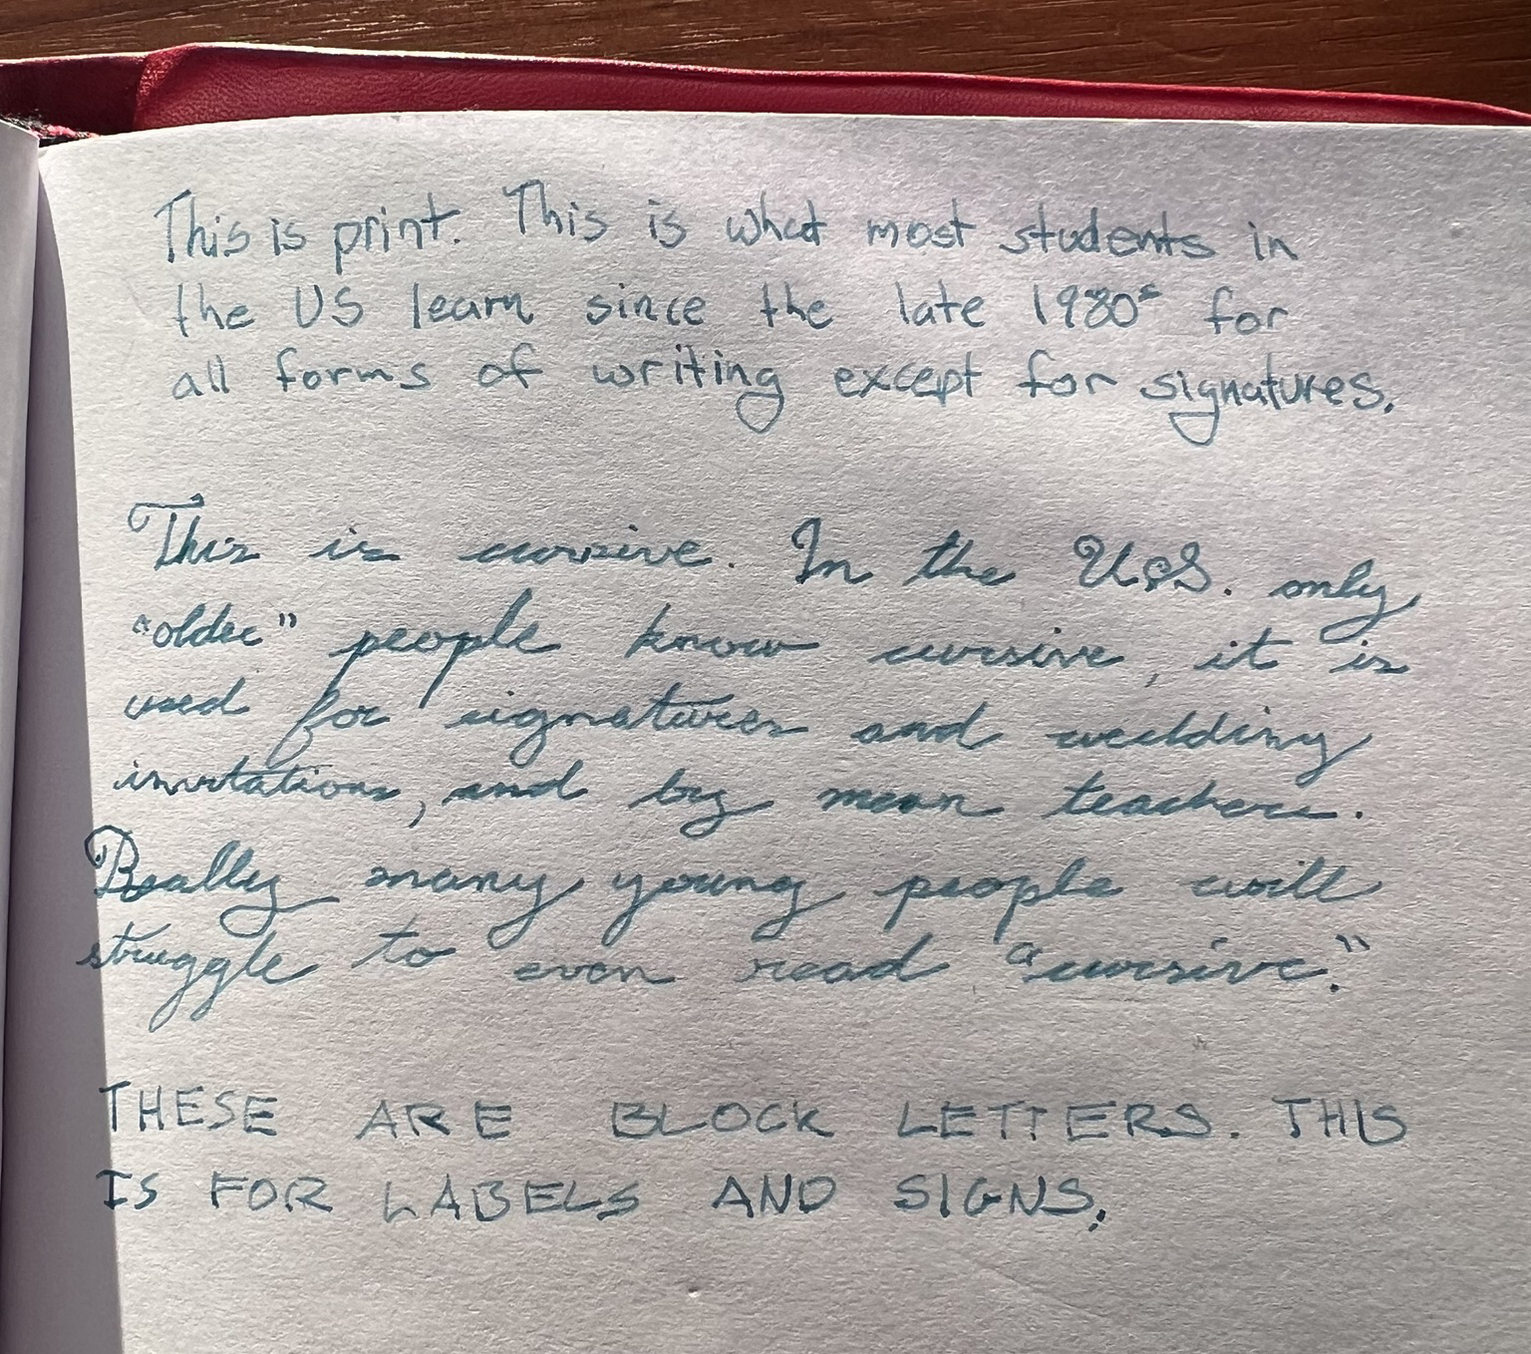 This is print. This is what most students in
the US learn since the late 1980s for
all forms of writing except for signatures.
This is cursive. In the U.S. only
"older" people know cursive, it is
used for signatures and wedding
invitations, and by mean teachers.
Really many young people will
struggle to even read "cursive."
THESE ARE BLOCK LETTERS. THIS
IS FOR LABELS AND SIGNS.